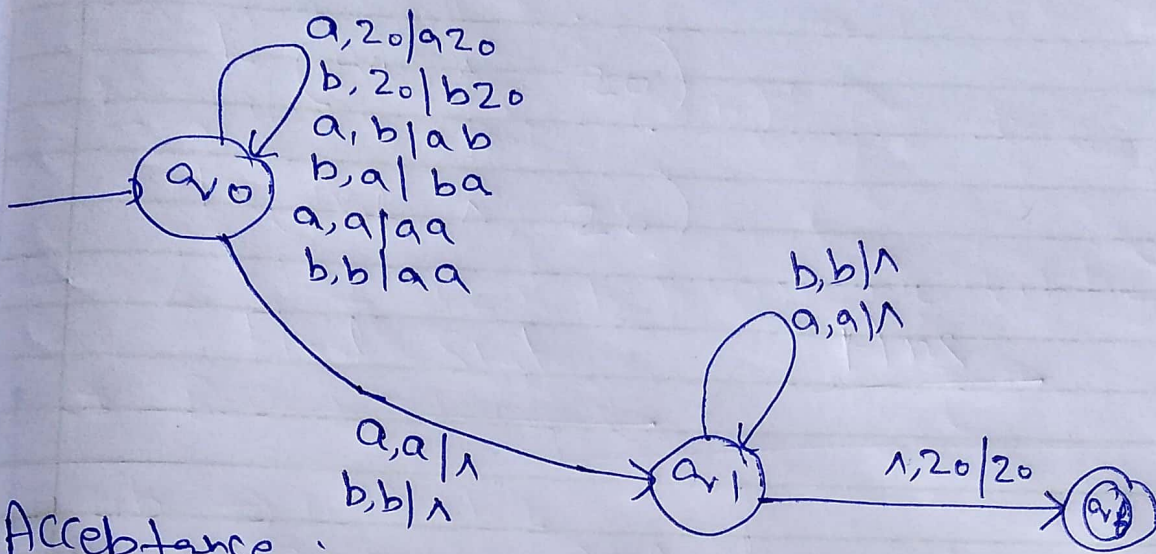 a,z0|az0
b,z0|bz0
a,b|ab
b,a|ba
a,a|aa
b,b|aa
q0
b,b|^
a,a|^
a,a|^
b,b|^
q1
^,z0|z0
Acceptance :